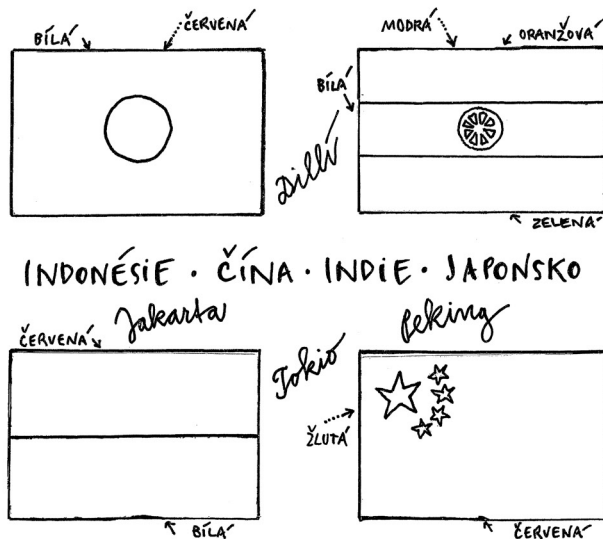 BÍLÁ
ČERVENÁ
MODRÁ
ORANŽOVÁ
BÍLÁ
Dillí
ZELENÁ
INDONÉSIE · ČÍNA · INDIE · JAPONSKO
Jakarta
Peking
ČERVENÁ
Tokio
ŽLUTÁ
BÍLÁ
ČERVENÁ